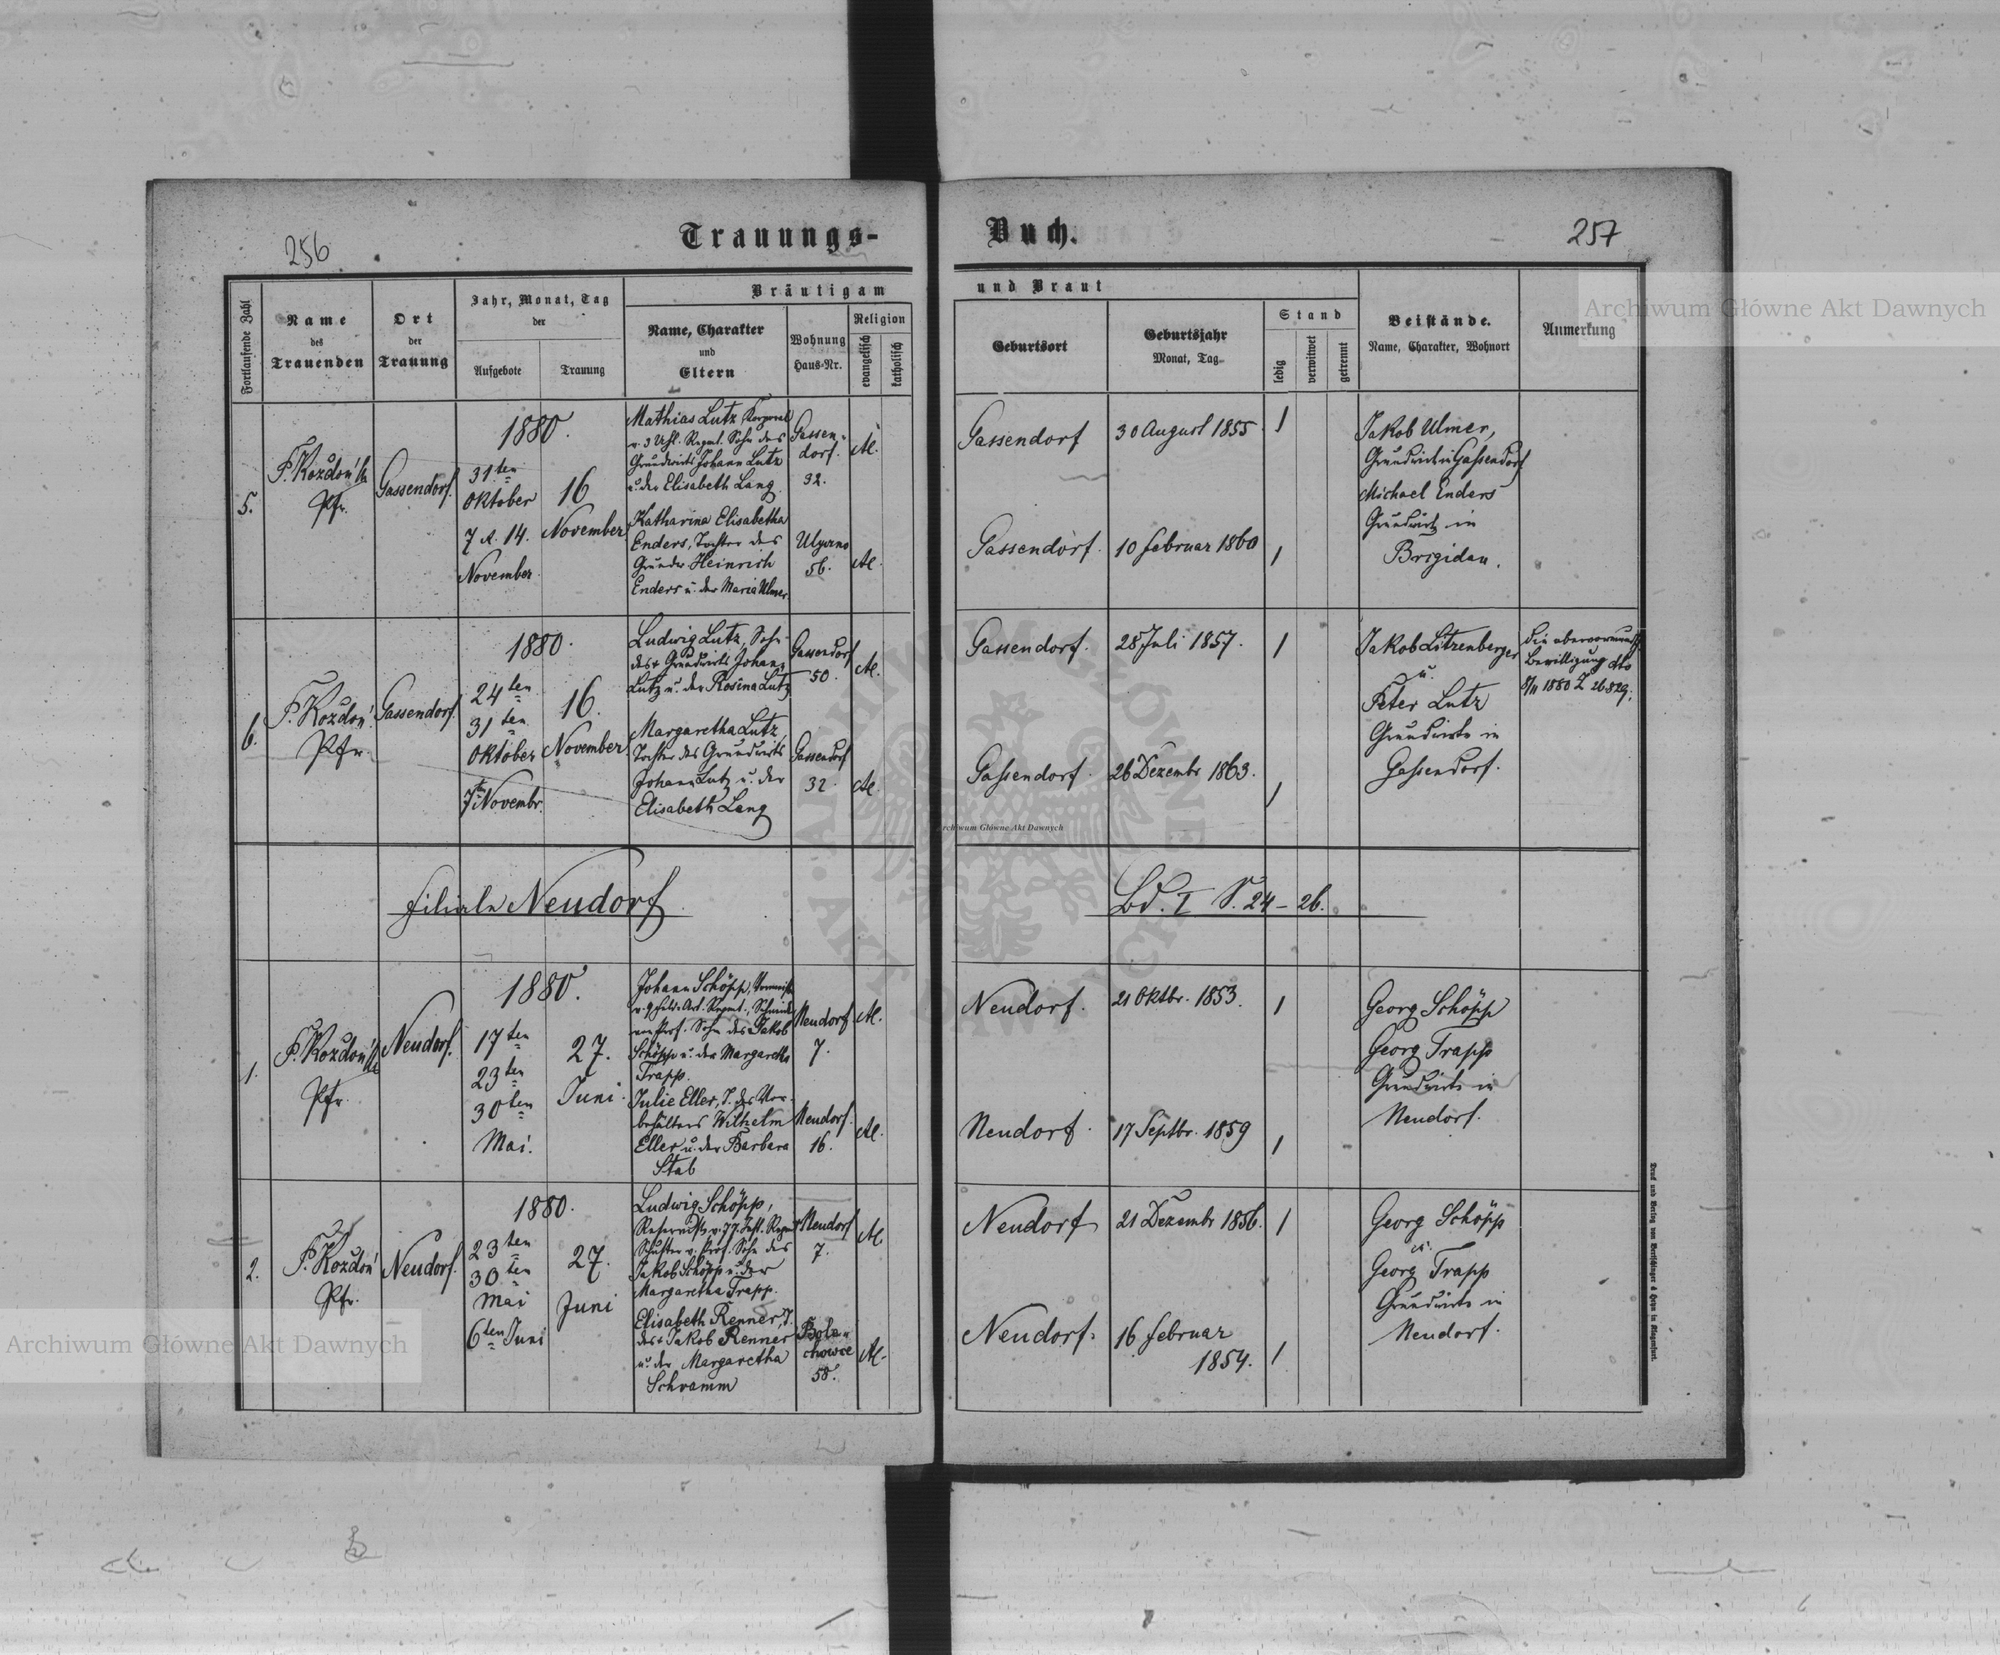 256
Trauungs-
Buch.
257
Fortlaufende Zahl
Name
des
Trauenden
Ort
der
Trauung
Jahr, Monat, Tag
der
Aufgebote
Trauung
Bräutigam
Name, Charakter
und
Eltern
Wohnung
Haus-Nr.
Religion
evangelisch
katholisch
und Braut
Geburtsort
Geburtsjahr
Monat, Tag
Stand
ledig
verwitwet
getrennt
Beistände.
Name, Charakter, Wohnort
Anmerkung
5.
F. Kozdoń
Pfr.
Gassendorf.
1880.
31ten
Oktober
7 u. 14.
November
16
November
Mathias Lutz, Korporal
Regmt. Sohn des
Grundwirts Johann Lutz
u. der Elisabeth Lang.
Gassen-
dorf.
32.
A.
Katharina Elisabetha
Enders, Tochter des
Heinrich
Enders u. der Maria Ulmer
Ulyczno
56.
A.
Gassendorf
30 August 1855
Gassendorf.
10 Februar 1860
Jakob Ulmer,
Grundwirt in Gassendorf
Michael Enders
Grundwirt in
Brigidau.
6.
F. Kozdoń
Pfr.
Gassendorf.
1880.
24ten
31ten
Oktober
7ten Novembr.
16.
November
Ludwig Lutz, Sohn
des † Grundwirts Johann
Lutz u. der Rosina Lutz
Gassendorf
50.
A.
Margaretha Lutz
Tochter des Grundwirts
Johann Lutz u. der
Elisabeth Lang
Gassendorf
32.
A.
Gassendorf.
28 Juli 1857.
Gassendorf.
26 Dezembr 1863.
Jakob Litzenberger
u.
Peter Lutz
Grundwirte in
Gassendorf.
Die obervormundsch.
Bewilligung dto
8/11 1880 Z 26829.
Filiale Neudorf
Bd. I S. 24 - 26.
1.
F. Kozdoń
Pfr.
Neudorf.
1880.
17ten
23ten
30ten
Mai.
27.
Juni.
Johann Schöpp,
v. 9 Feld. Art. Regmt., Schmied
von Prof. Sohn des Jakob
Schöpp u. der Margaretha
Trapp.
Neudorf
7.
A.
Julie Eller, T. des Vor-
behälters Wilhelm
Eller u. der Barbara
Stab
Neudorf.
16.
A.
Neudorf.
21 Oktbr. 1853.
Neudorf.
17 Septbr. 1859
Georg Schöpp
Georg Trapp
Grundwirte in
Neudorf.
2.
F. Kozdoń
Pfr.
Neudorf.
1880.
23ten
30ten
Mai
6ten Juni
27.
Juni
Ludwig Schöpp,
Reservist v. 77 Inft. Regmt
Schuster v. Prof. Sohn des
Jakob Schöpp u. der
Margaretha Trapp.
Neudorf
7.
A.
Elisabeth Renner, T.
des † Jakob Renner
u. der Margaretha
Schramm
Bole-
chowce
58.
A.
Neudorf
21 Dezembr 1856.
Neudorf.
16 Februar
1854.
Georg Schöpp
u.
Georg Trapp
Grundwirte in
Neudorf.
Druck und Verlag von Bertschinger & Heyn in Klagenfurt.
Archiwum Główne Akt Dawnych
Archiwum Główne Akt Dawnych
Archiwum Główne Akt Dawnych